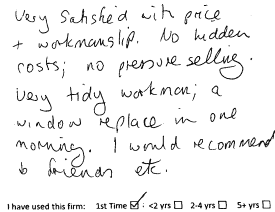 Very satisfied with price
+ workmanslip. No hidden
costs; no pressure selling.
Very tidy workman; a
window replace in one
morning. I would recommend
to friends etc.
I have used this firm: 1st Time ☑; <2 yrs ☐ 2-4 yrs ☐ 5+ yrs ☐